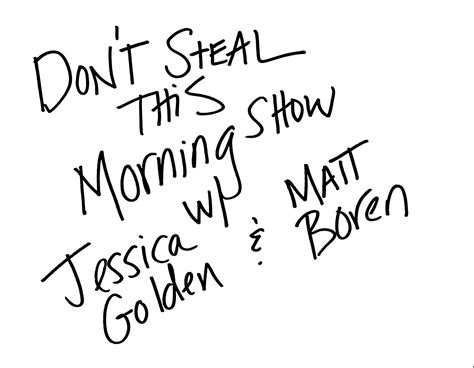 DON'T STEAL
THIS
Morning SHOW
w/
Jessica Golden & MATT Boren